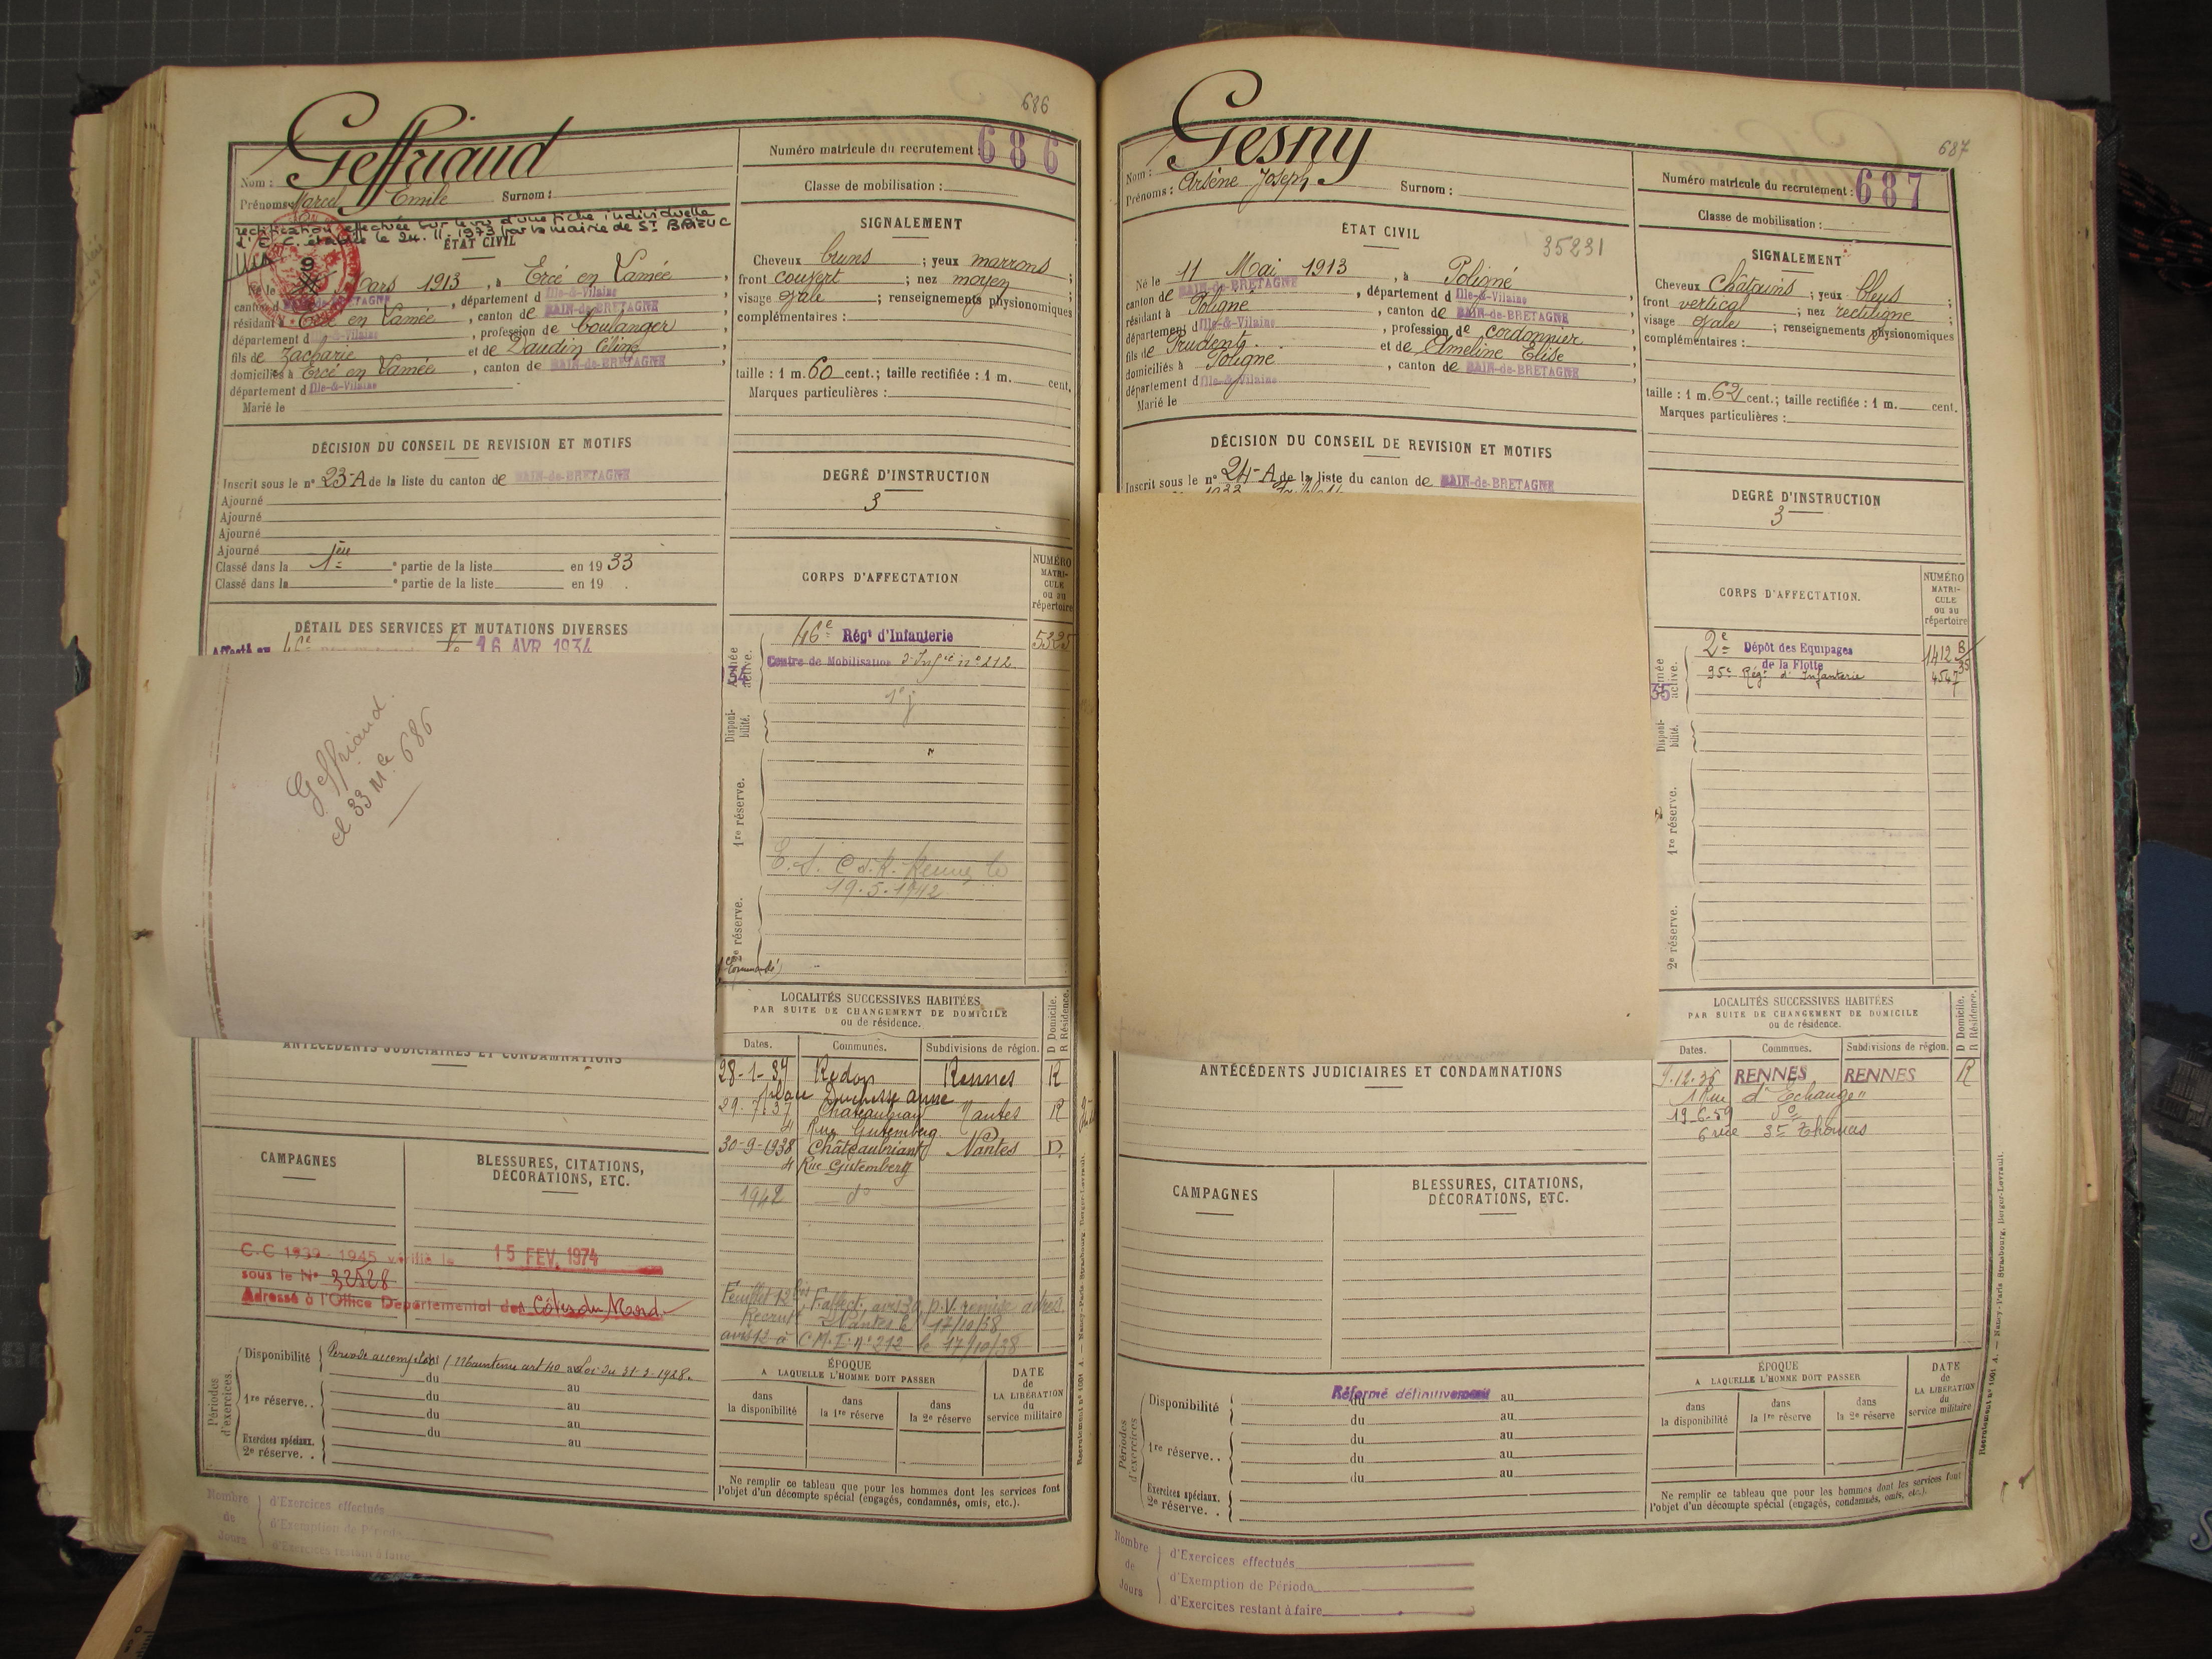 686
Geffriaud
Nom :
Prénoms : Marcel Emile Surnom :
rectification effectuée sur le vu d'une fiche individuelle
d'E.C. établie le 24.11.1973 par la mairie de St BRIEUC
ÉTAT CIVIL
Né le 9 Mars 1913, à Ercé en Lamée,
canton de BAIN-de-BRETAGNE, département d Ille-&-Vilaine,
résidant à Ercé en Lamée, canton de BAIN-de-BRETAGNE,
département d Ille-&-Vilaine, profession de boulanger,
fils de Zacharie et de Daudin Céline,
domiciliés à Ercé en Lamée, canton de BAIN-de-BRETAGNE,
département d Ille-&-Vilaine
Marié le
DÉCISION DU CONSEIL DE REVISION ET MOTIFS
Inscrit sous le n° 23-A de la liste du canton de BAIN-de-BRETAGNE
Ajourné
Ajourné
Ajourné
Ajourné
Classé dans la 1ère e partie de la liste en 1933
Classé dans la e partie de la liste en 19 .
DÉTAIL DES SERVICES ET MUTATIONS DIVERSES
Affecté au 46e le 16 AVR 1934
Geffriaud.
cl 33 Mle 686
ANTÉCÉDENTS JUDICIAIRES ET CONDAMNATIONS
CAMPAGNES
BLESSURES, CITATIONS,
DÉCORATIONS, ETC.
C.C 1939-1945 vérifié le 15 FEV. 1974
sous le N° 32528
Adressé à l'Office Départemental des Côtes du Nord
Périodes d'exercices.
Disponibilité Période accomplie (Maintenu art 40 a loi du 31-3-1928.
du au
1re réserve. . du au
du au
Exercices spéciaux. du au
2e réserve. .
Nombre de Jours
d'Exercices effectués
d'Exemption de Période
d'Exercices restant à faire
Numéro matricule du recrutement : 686
Classe de mobilisation :
SIGNALEMENT
Cheveux bruns ; yeux marrons ;
front couvert ; nez moyen ;
visage ovale ; renseignements physionomiques
complémentaires :
taille : 1 m. 60 cent.; taille rectifiée : 1 m. cent.
Marques particulières :
DEGRÉ D'INSTRUCTION
3
CORPS D'AFFECTATION
NUMÉRO MATRICULE ou au répertoire
Armée active.
46e Régt d'Infanterie 5325
Centre de Mobilisation d'Infie n° 212
Disponibilité.
1re réserve.
E.S. C.d.R. Rennes le
19.5.1942
2e réserve.
LOCALITÉS SUCCESSIVES HABITÉES
PAR SUITE DE CHANGEMENT DE DOMICILE
ou de résidence.
D Domicile.
R Résidence.
Dates. Communes. Subdivisions de région.
28-1-37 Redon Rennes R
place Duchesse anne
29-7-37 Chateaubriant Nantes R
4 Rue Gutemberg
30-9-1938 Châteaubriant Nantes D
4 Rue Gutemberg
1942 d°
Feuillet 12 bis, F. affect., avis 30, p.V. remise adres.
Recrut Nantes le 17/10/38
avis 12 à C.M.I. n° 212 le 17/10/38
ÉPOQUE
A LAQUELLE L'HOMME DOIT PASSER
dans la disponibilité
dans la 1re réserve
dans la 2e réserve
DATE de LA LIBÉRATION du service militaire
Ne remplir ce tableau que pour les hommes dont les services font
l'objet d'un décompte spécial (engagés, condamnés, omis, etc.).
Recrutement n° 1001 A. — Nancy-Paris-Strasbourg, Berger-Levrault.
687
Gesny
Nom :
Prénoms : Arsène Joseph Surnom :
ÉTAT CIVIL
35231
Né le 11 Mai 1913, à Poligné
canton de BAIN-de-BRETAGNE, département d Ille-&-Vilaine,
résidant à Poligné, canton de BAIN-de-BRETAGNE,
département d Ille-&-Vilaine, profession de cordonnier,
fils de Prudent et de Ameline Elise,
domiciliés à Poligné, canton de BAIN-de-BRETAGNE,
département d Ille-&-Vilaine
Marié le
DÉCISION DU CONSEIL DE REVISION ET MOTIFS
Inscrit sous le n° 24-A de la liste du canton de BAIN-de-BRETAGNE
ANTÉCÉDENTS JUDICIAIRES ET CONDAMNATIONS
CAMPAGNES
BLESSURES, CITATIONS,
DÉCORATIONS, ETC.
Périodes d'exercices.
Disponibilité Réformé définitivement
du au
du au
1re réserve. . du au
du au
du au
Exercices spéciaux.
2e réserve. .
Nombre de Jours
d'Exercices effectués
d'Exemption de Période
d'Exercices restant à faire
Numéro matricule du recrutement : 687
Classe de mobilisation :
SIGNALEMENT
Cheveux châtains ; yeux bleus ;
front vertical ; nez rectiligne ;
visage ovale ; renseignements physionomiques
complémentaires :
taille : 1 m. 62 cent.; taille rectifiée : 1 m. cent.
Marques particulières :
DEGRÉ D'INSTRUCTION
3
CORPS D'AFFECTATION.
NUMÉRO MATRICULE ou au répertoire
Armée active.
35
2e Dépôt des Equipages 1412 B
de la Flotte 35
95e Régt d'Infanterie 4547
Disponibilité.
1re réserve.
2e réserve.
LOCALITÉS SUCCESSIVES HABITÉES
PAR SUITE DE CHANGEMENT DE DOMICILE
ou de résidence.
D Domicile.
R Résidence.
Dates. Communes. Subdivisions de région.
9.12.36 RENNES RENNES R
1 Rue d'Echange
19.6.59 d°
6 rue St Thomas
ÉPOQUE
A LAQUELLE L'HOMME DOIT PASSER
dans la disponibilité
dans la 1re réserve
dans la 2e réserve
DATE de LA LIBÉRATION du service militaire
Ne remplir ce tableau que pour les hommes dont les services font
l'objet d'un décompte spécial (engagés, condamnés, omis, etc.).
Recrutement n° 1001 A. — Nancy-Paris-Strasbourg, Berger-Levrault.